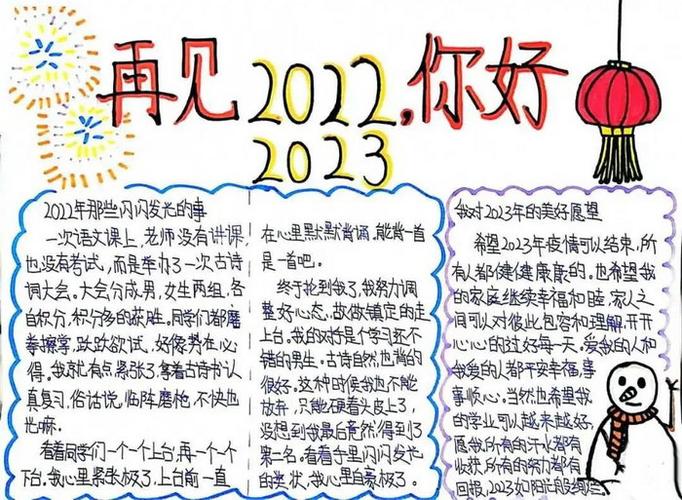 再见2022,你好
2023
2022年那些闪闪发光的事
一次语文课上,老师没有讲课,
也没有考试,而是举办了一次古诗
词大会。大会分成男,女生两组,各
自积分,积分多的获胜。同学们都磨
拳擦掌,跃跃欲试,好像势在必
得。我就有点紧张了,拿着古诗书认
真复习,俗话说,临阵磨枪,不快也
光嘛。
看着同学们一个一个上台,再一个一个
下台。我心里紧张极了,上台前一直
在心里默默背诵,能背一首
是一首吧。
终于轮到我了,我努力调
整好心态,故做镇定的走
上台。我的对持是个学习还不
错的男生。古诗自然也背的
很好。这种时候我也不能
放弃,只能硬着头皮上了,
没想到我最后竟然得到了
第一名。看着手里闪闪发光
的奖状,我心里自豪极了。
我对2023年的美好愿望
希望2023年疫情可以结束,所
有人都健健康康的。也希望我
的家庭继续幸福和睦,家人之
间可以对彼此包容和理解,开开
心心的过好每一天。爱我的人和
我爱的人都平安幸福,事
事顺心。当然也希望我
的学业可以越来越好,
愿我所有的汗水都有
收获,所有的努力都有
回报,2023如阳光般绚